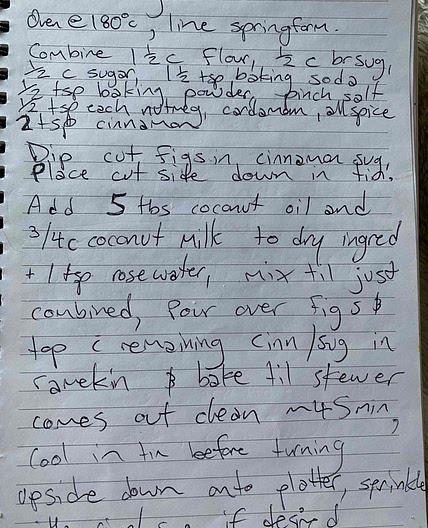 Oven @ 180°c, line springform.
Combine 1 ½ c flour, ½ c br sug,
½ c sugar, 1½ tsp baking soda
½ tsp baking powder, pinch salt
½ tsp each nutmeg, cardamom, allspice
2 tsp cinnamon
Dip cut figs in cinnamon sug,
Place cut side down in tin.
Add 5 tbs coconut oil and
3/4 c coconut milk to dry ingred
+ 1 tsp rosewater, mix til just
combined, Pour over figs &
top c remaining cinn/sug in
ramekin & bake til skewer
comes out clean ~45 min,
Cool in tin before turning
upside down onto platter, sprinkle
if desired